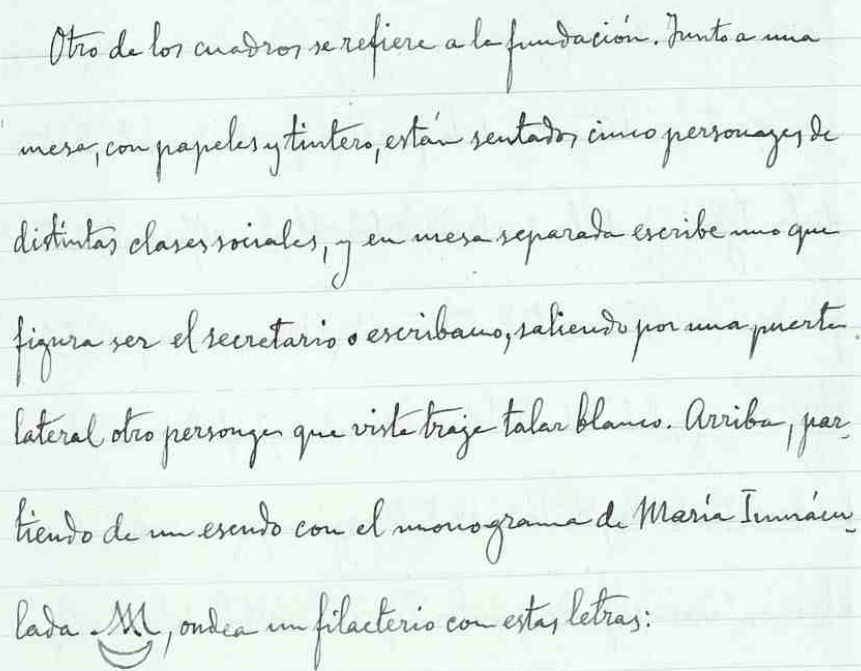 Otro de los cuadros se refiere a la fundación. Junto a una
mesa, con papeles y tintero, están sentados cinco personages de
distintas clases sociales, y en mesa separada escribe uno que
figura ser el secretario o escribano, saliendo por una puerta
lateral otro personage que viste traje talar blanco. Arriba, par-
tiendo de un escudo con el monograma de María Inmácu-
lada M, ondea un filacterio con estas letras: